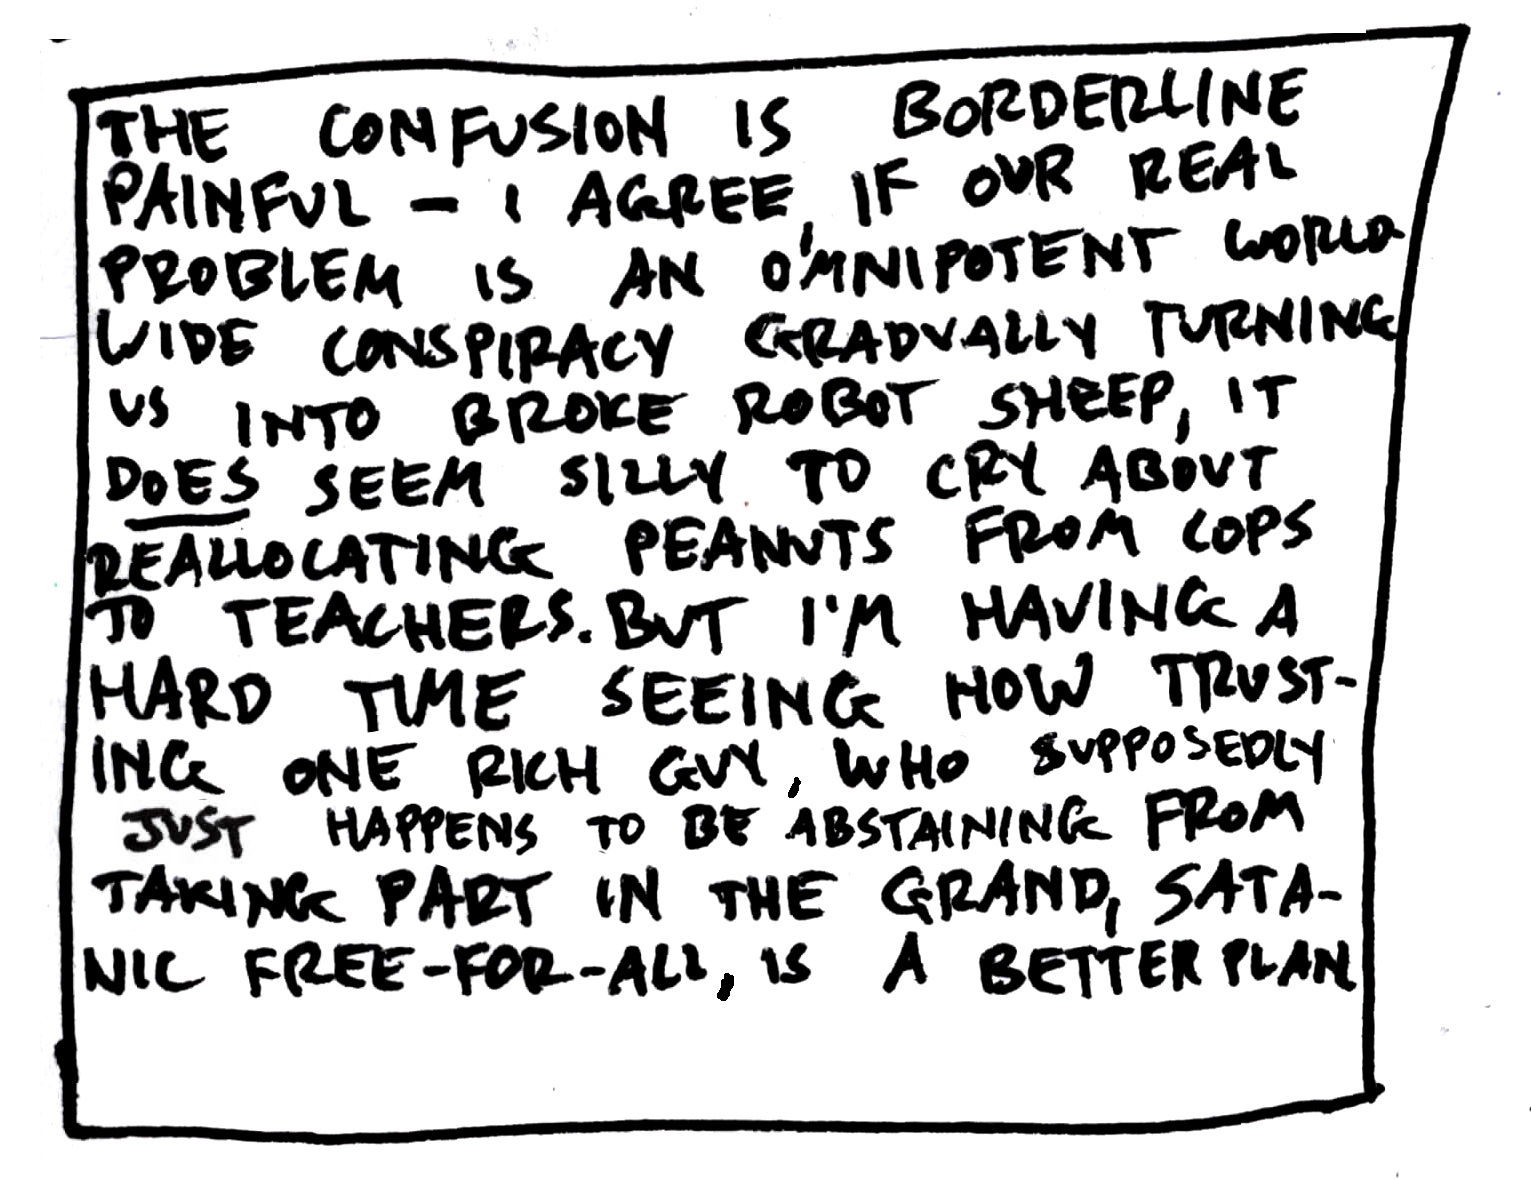 THE CONFUSION IS BORDERLINE
PAINFUL - I AGREE, IF OUR REAL
PROBLEM IS AN OMNIPOTENT WORLD-
WIDE CONSPIRACY GRADUALLY TURNING
US INTO BROKE ROBOT SHEEP, IT
DOES SEEM SILLY TO CRY ABOUT
REALLOCATING PEANUTS FROM COPS
TO TEACHERS. BUT I'M HAVING A
HARD TIME SEEING HOW TRUST-
ING ONE RICH GUY, WHO SUPPOSEDLY
JUST HAPPENS TO BE ABSTAINING FROM
TAKING PART IN THE GRAND, SATA-
NIC FREE-FOR-ALL, IS A BETTER PLAN